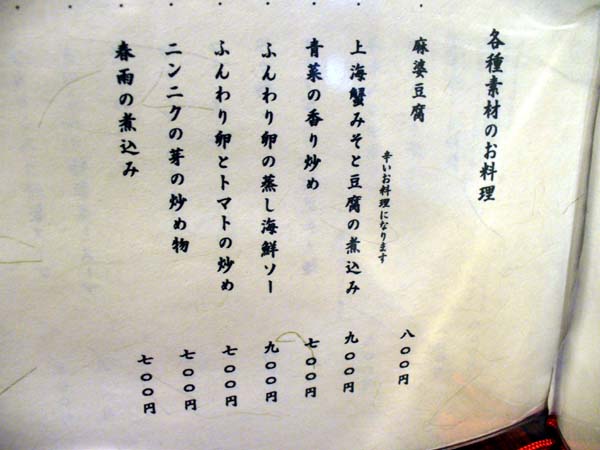 各種素材のお料理
麻婆豆腐 八〇〇円
辛いお料理になります
上海蟹みそと豆腐の煮込み 九〇〇円
青菜の香り炒め 七〇〇円
ふんわり卵の蒸し海鮮ソー 九〇〇円
ふんわり卵とトマトの炒め 七〇〇円
ニンニクの芽の炒め物 七〇〇円
春雨の煮込み 七〇〇円